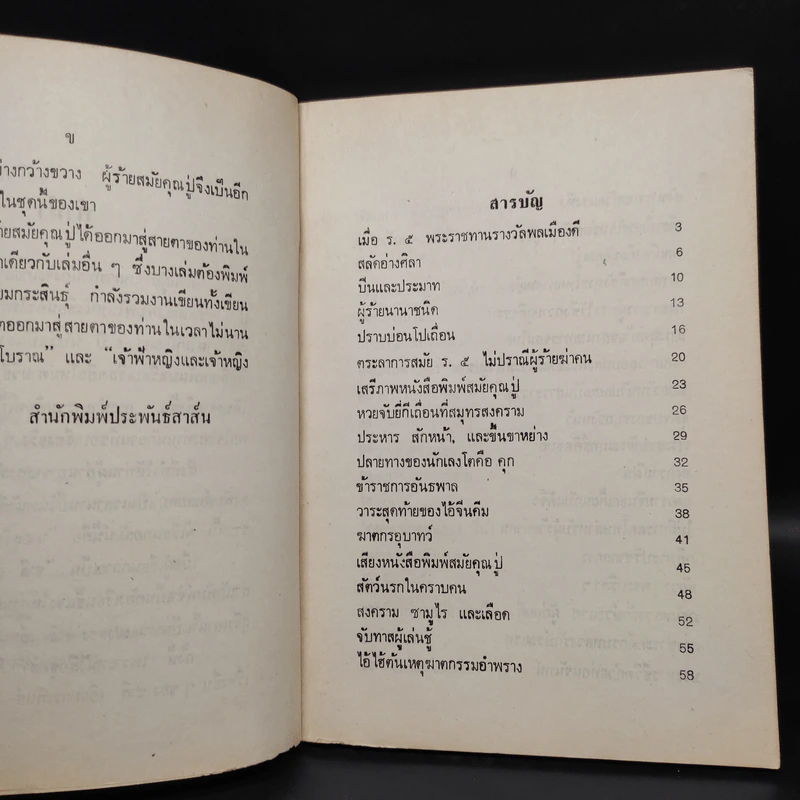 ข
ย่างกว้างขวาง ผู้ร้ายสมัยคุณปู่จึงเป็นอีก
ในชุดนี้ของเขา
ยสมัยคุณปู่ได้ออกมาสู่สายตาของท่านใน
เดียวกับเล่มอื่น ๆ ซึ่งบางเล่มต้องพิมพ์
ยมกระสินธุ์ กำลังรวมงานเขียนทั้งเขียน
ออกมาสู่สายตาของท่านในเวลาไม่นาน
โบราณ” และ “เจ้าฟ้าหญิงและเจ้าหญิง
สำนักพิมพ์ประพันธ์สาส์น
สารบัญ
เมื่อ ร. ๕ พระราชทานรางวัลพลเมืองดี 3
สลัดอ่างศิลา 6
ปืนและประมาท 10
ผู้ร้ายนานาชนิด 13
ปราบบ่อนโปเถื่อน 16
ตระลาการสมัย ร. ๕ ไม่ปราณีผู้ร้ายฆ่าคน 20
เสรีภาพหนังสือพิมพ์สมัยคุณปู่ 23
หวยจับยี่กีเถื่อนที่สมุทรสงคราม 26
ประหาร สักหน้า, และขึ้นขาหย่าง 29
ปลายทางของนักเลงโตคือ คุก 32
ข้าราชการอันธพาล 35
วาระสุดท้ายของไอ้จีนคีม 38
ฆาตกรอุบาทว์ 41
เสียงหนังสือพิมพ์สมัยคุณปู่ 45
สัตว์นรกในคราบคน 48
สงคราม ซามูไร และเลือด 52
จับทาสผู้เล่นชู้ 55
ไอ้ไฮ้ต้นเหตุฆาตกรรมอำพราง 58